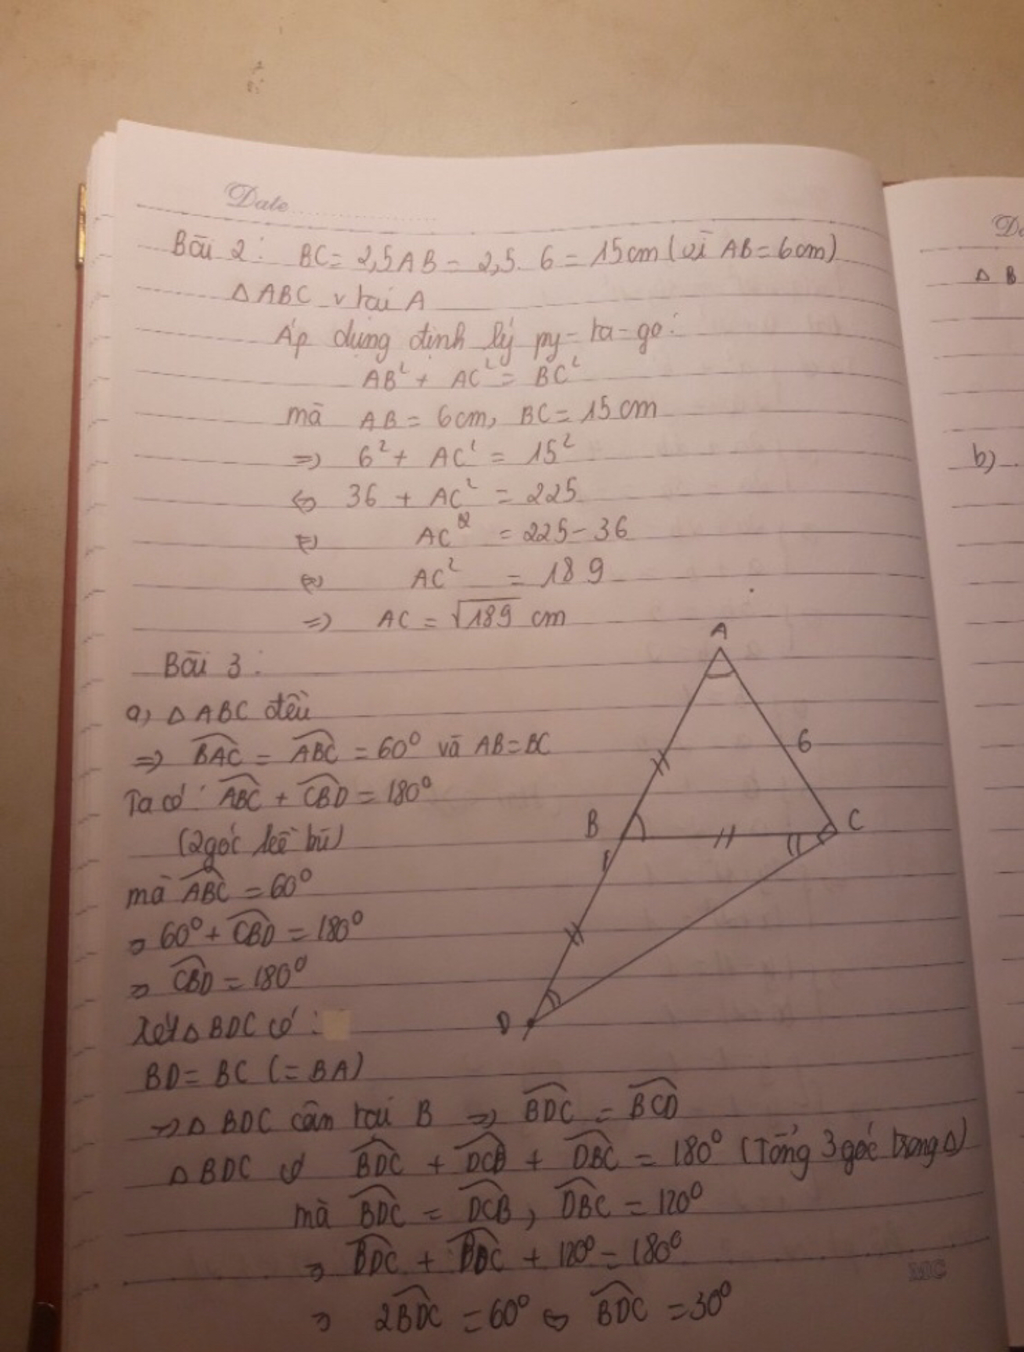 Date
Bài 2: BC = 2,5AB = 2,5. 6 = 15cm (vì AB = 6cm)
△ABC v tại A
Áp dụng định lý py-ta-go:
AB² + AC² = BC²
mà AB = 6cm, BC = 15cm
=> 6² + AC² = 15²
<=> 36 + AC² = 225
<=> AC² = 225 - 36
<=> AC² = 189
=> AC = √189 cm
Bài 3:
a, △ABC đều
=> BAC = ABC = 60° và AB = BC
Ta có: ABC + CBD = 180°
(2 góc kề bù)
mà ABC = 60°
=> 60° + CBD = 180°
=> CBD = 180°
Xét △BDC có:
BD = BC (= BA)
=> △BDC cân tại B => BDC = BCD
△BDC có BDC + DCB + DBC = 180° (Tổng 3 góc trong △)
mà BDC = DCB, DBC = 120°
=> BDC + BDC + 120° = 180°
=> 2BDC = 60° <=> BDC = 30°
A
6
B
C
D
△ B
b)